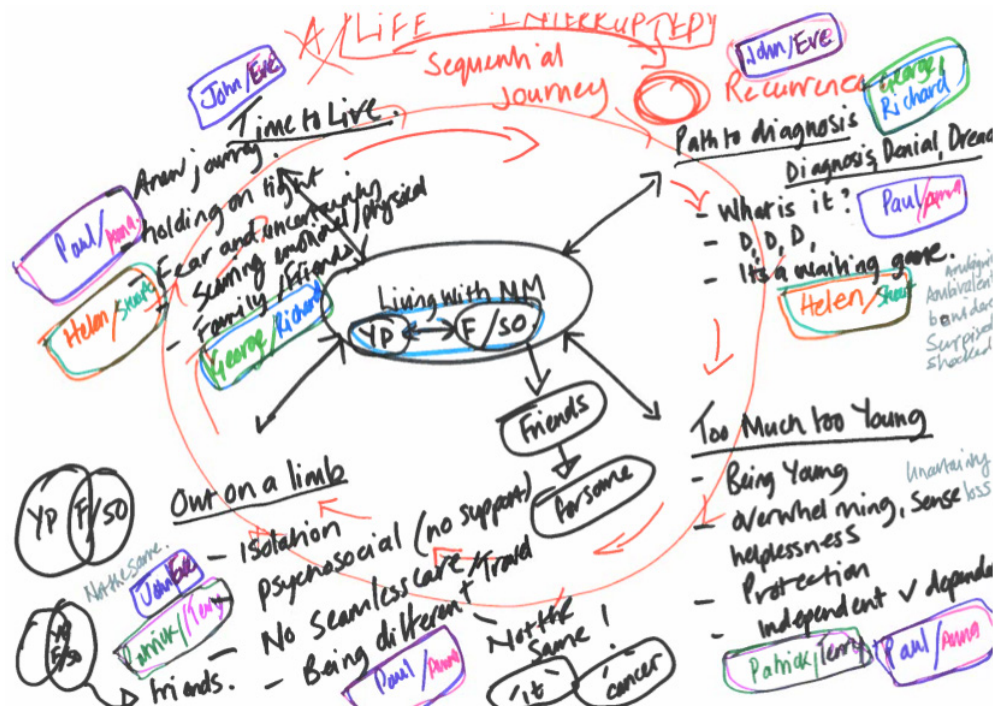 A LIFE INTERRUPTED
Sequential
Journey
Recurrence
John/Eve
John/Eve
George/
Richard
Time to Live.
A new journey.
- holding on tight
- Fear and uncertainty
- Seaming emotional/physical
- Family/Friends
Paul/Anna
Helen/Stuart
George/Richard
Path to diagnosis
Diagnosis, Denial, Dread
- What is it?
- D, D, D,
- It's a waiting game.
Paul/Anna
Helen/Stuart
Ambivalent
Surprised
shocked
Living with MM
YP
F/SO
Friends
For some
Too Much too Young
- Being Young
- overwhelming, sense
helplessness
- Protection
- Independent v depende
Uncertainty
loss
Patrick/Terry
Paul/Anna
Out on a limb
- Isolation
psychosocial (no support)
- No seamless care/Travel
- Being different
- Not the
Same!
'it'
cancer
YP
F/SO
Not the same.
John/Eve
Patrick/Terry
YP
F/SO
friends.
Paul/Anna